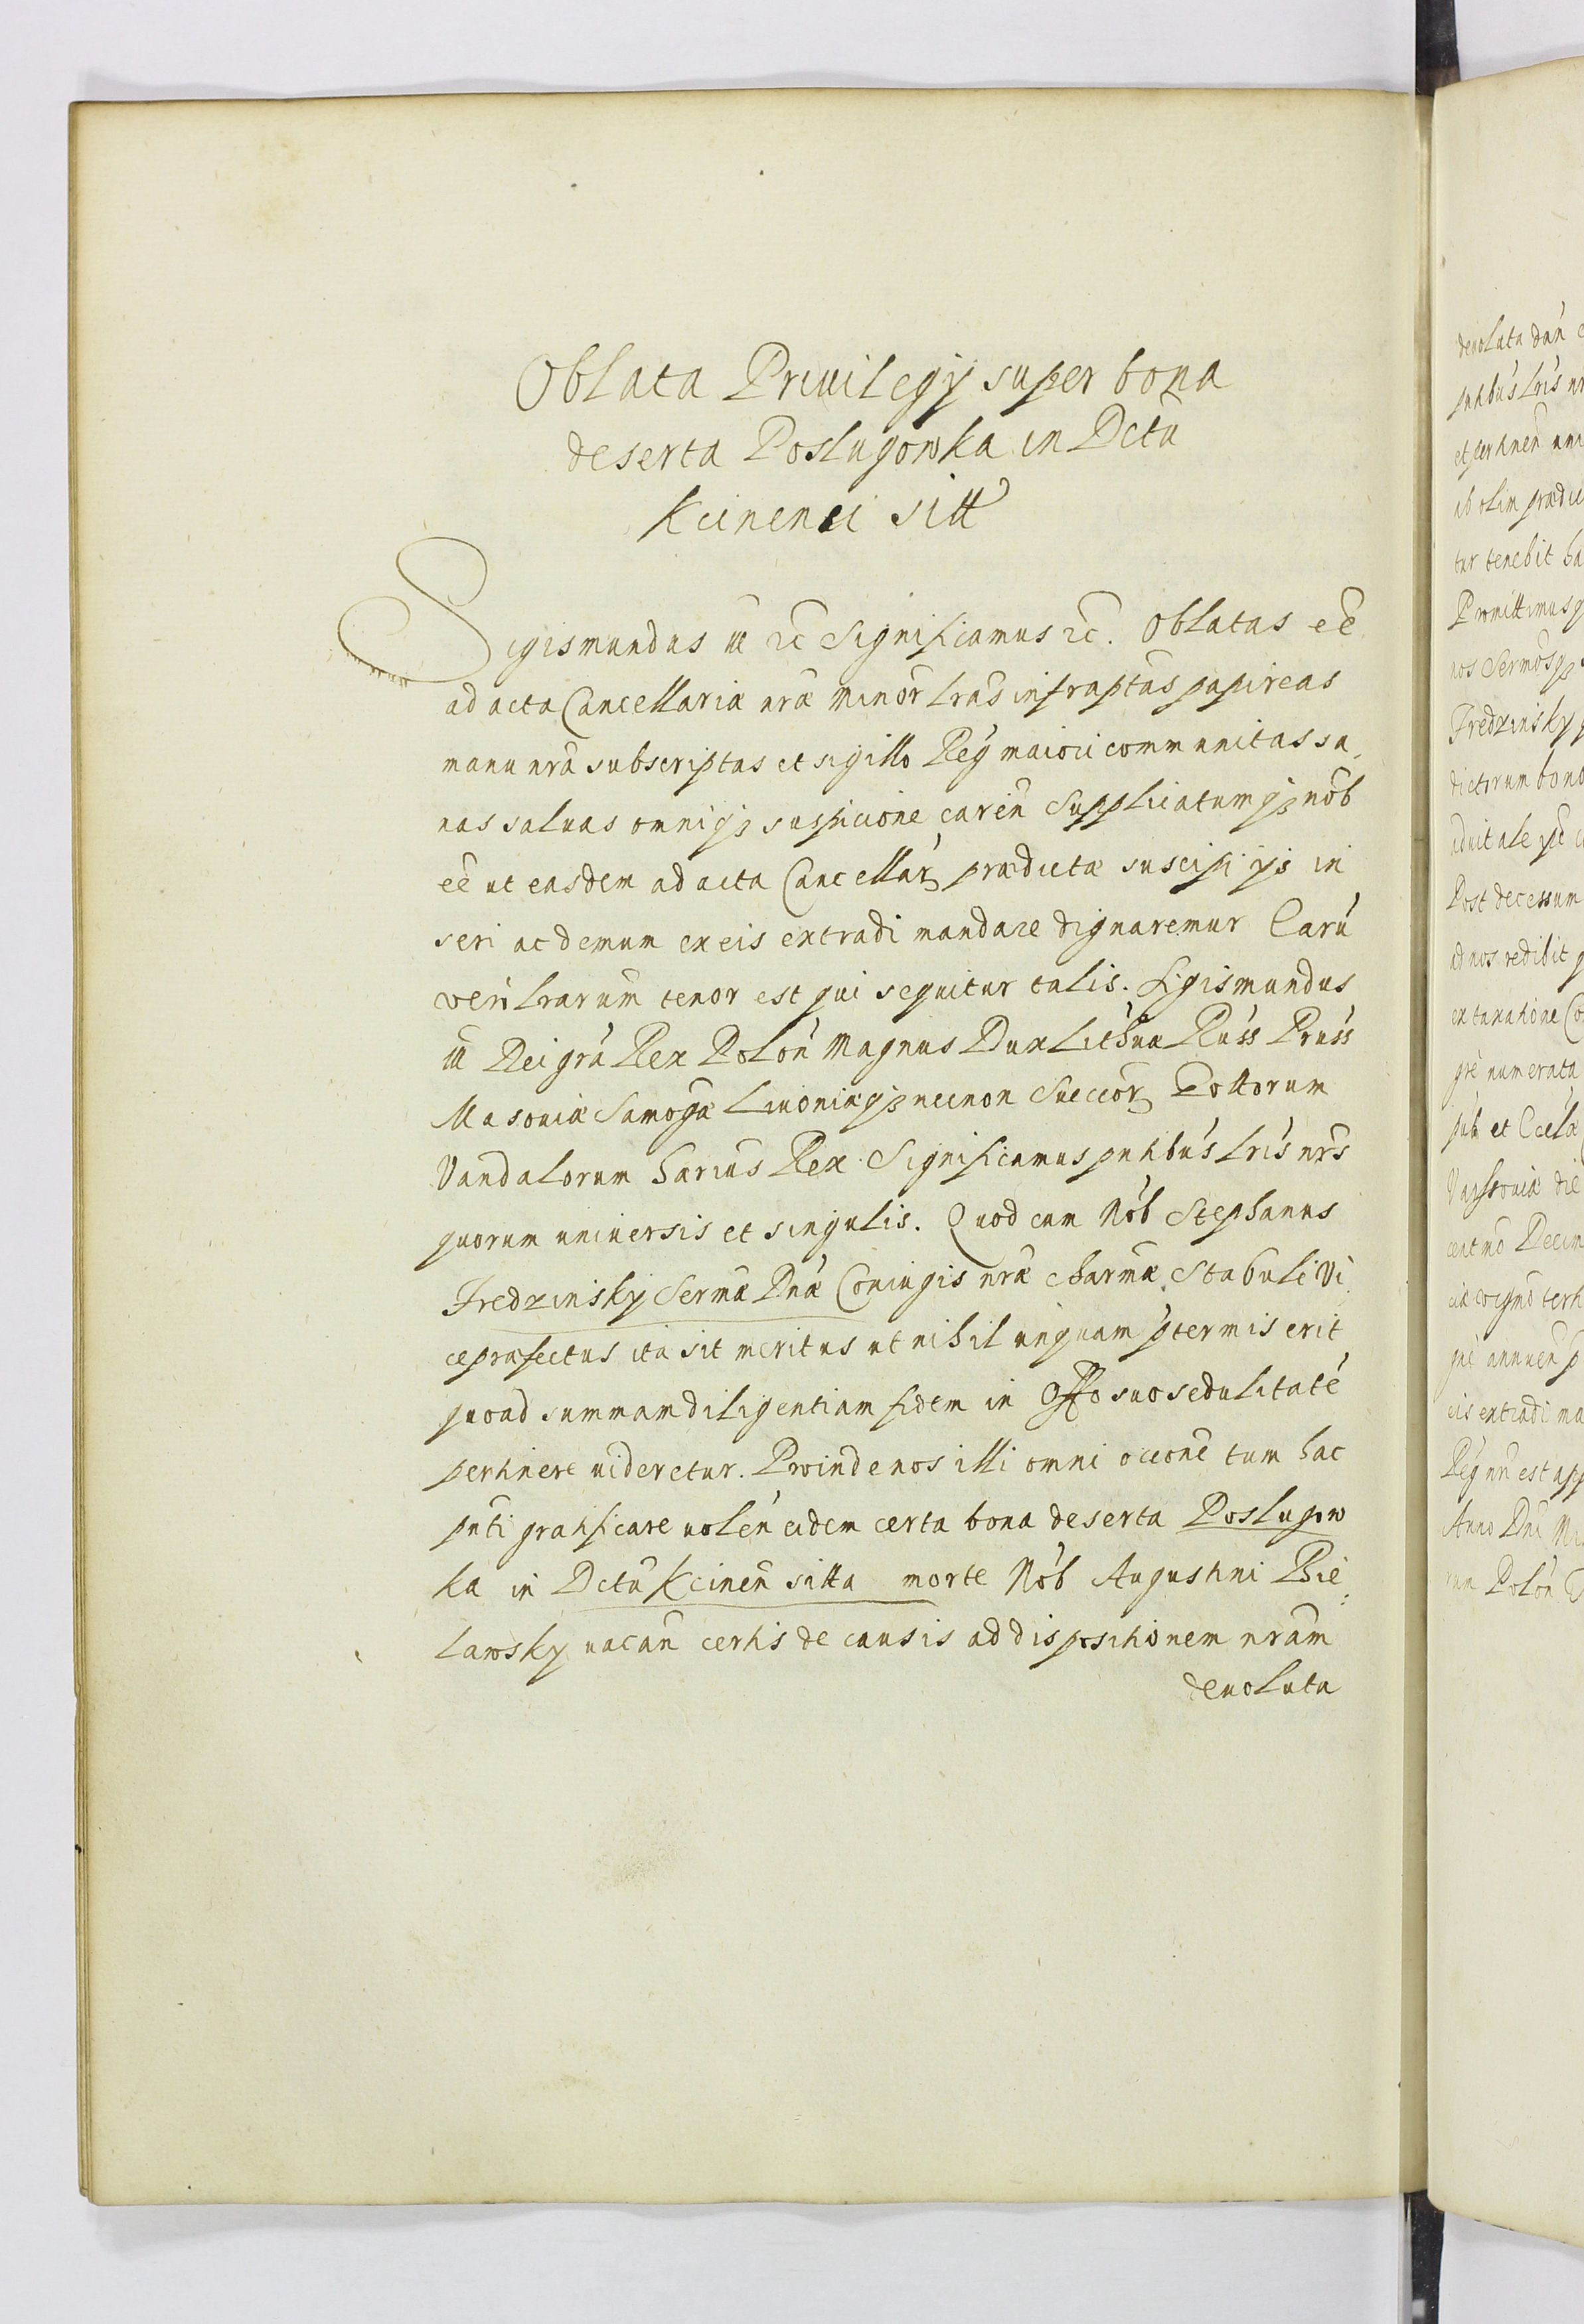 Oblata Priuilegÿ super bona
deserta Poslugowka in Dctū
Kcinensi sitt
Sigismundus III ꝛc Significamus ꝛc. Oblatas eē
ad acta Cancellariæ nræ minor lras infraptas papireas
manu nra subscriptas et sigillo Reg maiori communitas sa
nas saluas omniqꝫ suspicione caren Supplicatumqꝫ nob
eē ut easdem ad acta Cancellar prædictæ suscipi ÿs in
seri ac demum ex eis extradi mandare dignaremur Earu
vero lrarum tenor est qui sequitur talis. Sigismundus
III Dei gra Rex Polon Magnus Dux Lithuæ Russ Pruss
Masouiæ Samogæ Liuoniæqꝫ necnon Suecor Gottorum
Vandalorum harius Rex Significamus pntibus lris nrs
quorum uniuersis et singulis. Quod cum Nob Stephanus
Fredzinsky Sermæ Dnæ Coniugis nræ charmæ Stabuli Vi
ceprafectus ita sit meritus ut nihil unquam ptermiserit
quoad summam diligentiam fidem in Offo suo sedulitatē
pertinere uideretur. Proinde nos illi omni occone tum hac
pnti gratificare uolen eidem certa bona deserta Poslugow
ka in Dctu Kcinen sitta morte Nob Augustini Bie
lawsky uacan certis de causis ad dispositionem nram
deuoluta
devoluta dan
pntibus lris nr
et pertinen
ab olim prædic
tur tenebit ha
Promittimus
nos Sermos
Fredzinsky
dictorum bono
aduitale
Post decessum
ad nos redibit
ex taxatione Co
numerata
et
Varssouiæ die
Decim
terti
annuen
eis extradi ma
Reg nri est app
Anno Dni Mi
rum Polon